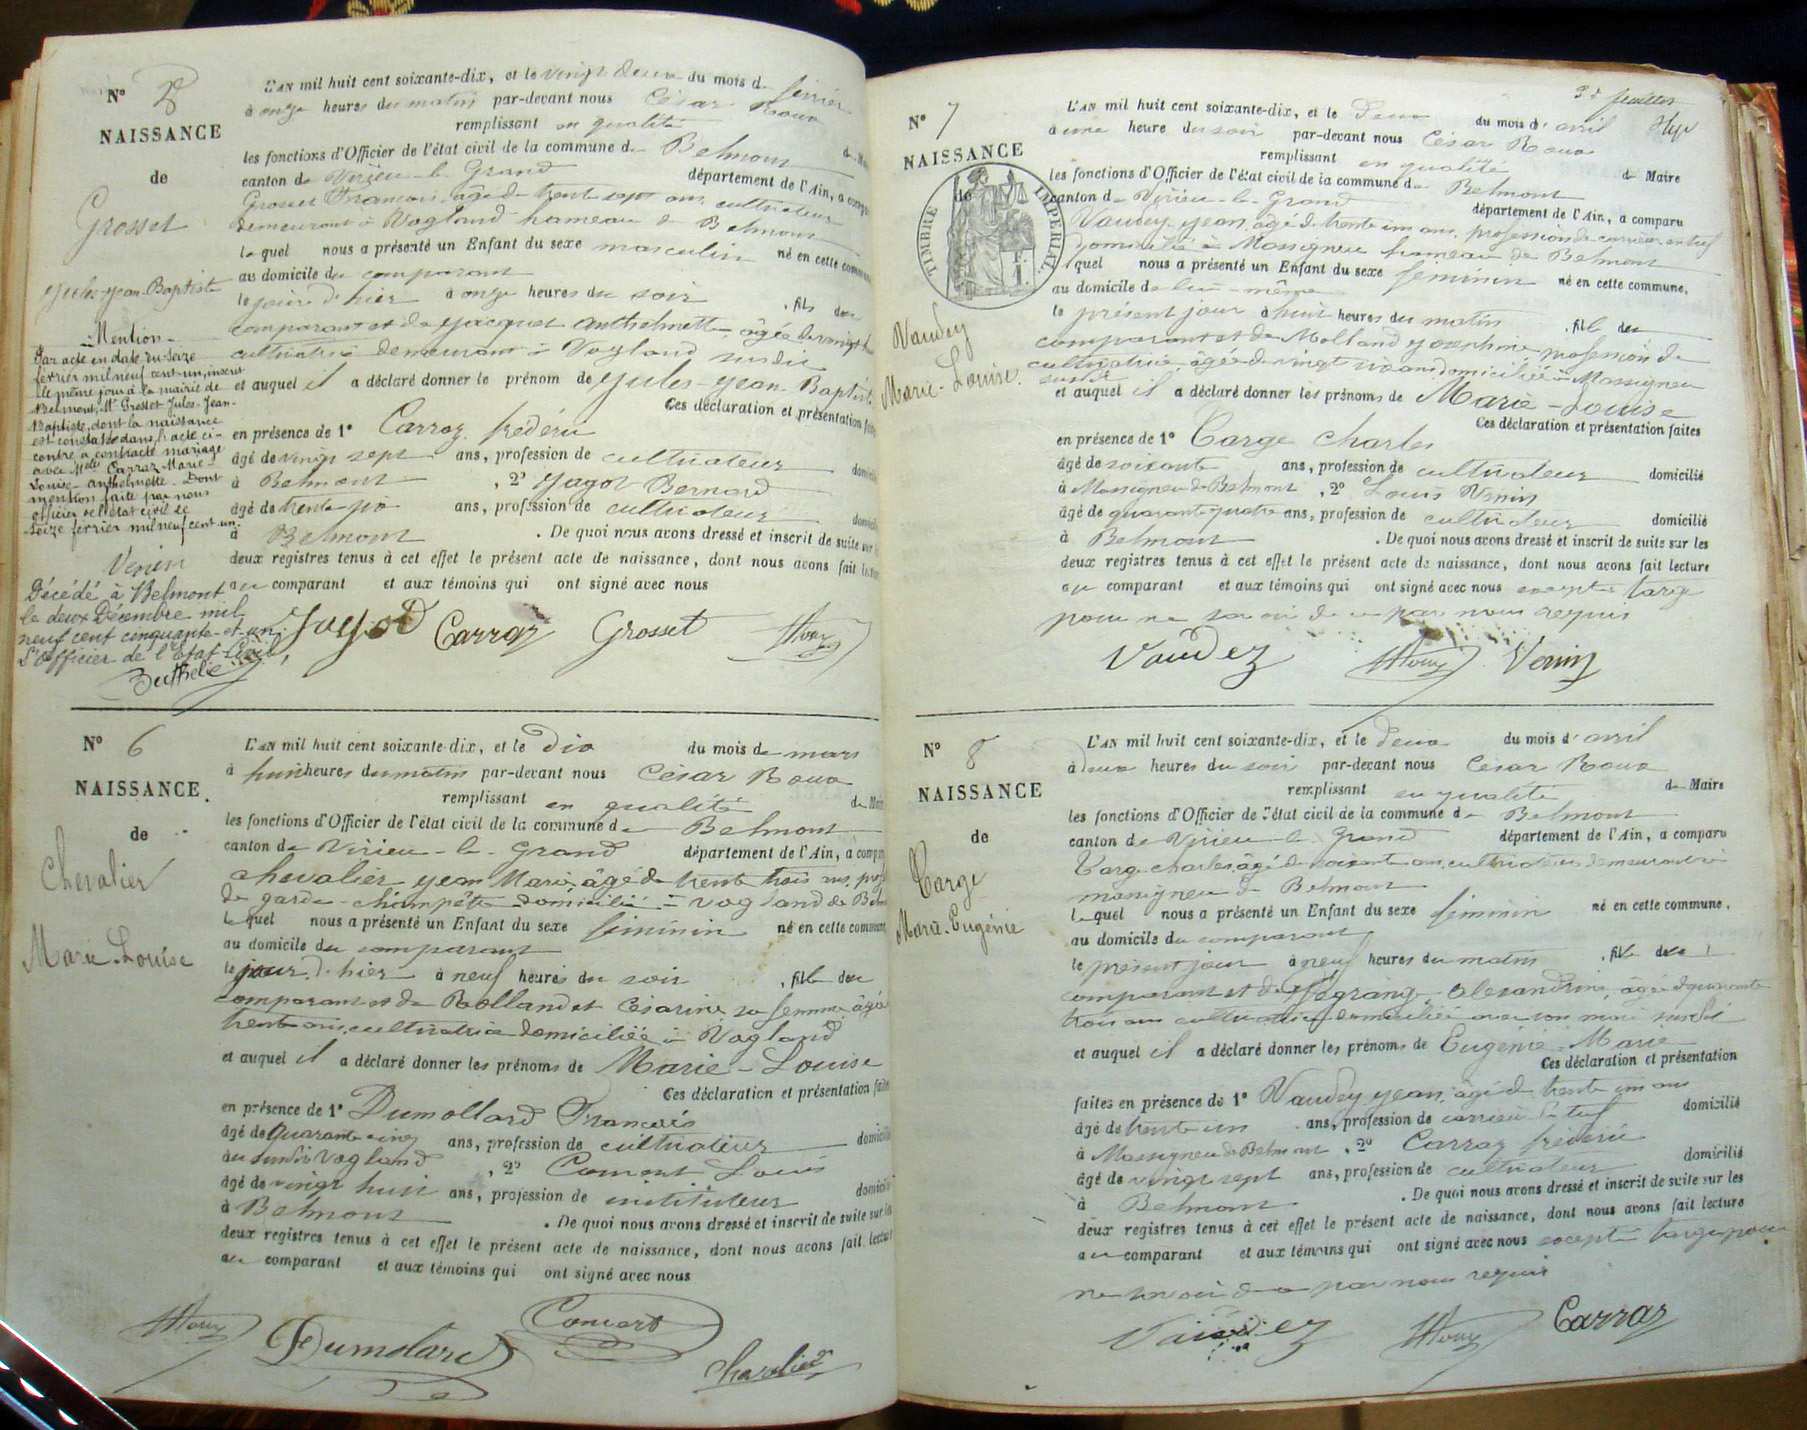 N° 5
NAISSANCE
de
Grosset
Jules-Jean-Baptiste
Mention
Par acte en date du seize
février mil neuf cent un, inscrit
le même jour à la mairie de
Belmont, Mr Grosset Jules-Jean-
Baptiste, dont la naissance
est constatée dans l'acte ci-
contre a contracté mariage
avec Melle Carraz Marie-
Louise-Anthelmette. Dont
mention faite par nous
officier de l'état civil le
seize février mil neuf cent un.
Venin
Décédé à Belmont
le deux Décembre mil
neuf cent cinquante-et-un.
L'Officier de l'Etat Civil,
L'AN mil huit cent soixante-dix, et le vingt deux du mois de février
à onze heures du matin par-devant nous César Roux
remplissant en qualité de Maire
les fonctions d'Officier de l'état civil de la commune de Belmont
canton de Virieu-le-Grand département de l'Ain, a comparu
Grosset François âgé de trente sept ans, cultivateur
demeurant à Vogland hameau de Belmont
lequel nous a présenté un Enfant du sexe masculin né en cette commune
au domicile du comparant
le jour d'hier à onze heures du soir, fils du
comparant et de Jacquet Anthelmette âgée de vingt
cultivatrice demeurant à Vogland susdit
et auquel il a déclaré donner le prénom de Jules-Jean-Baptiste
Ces déclaration et présentation faites
en présence de 1° Carraz frédéric
âgé de vingt sept ans, profession de cultivateur domicilié
à Belmont, 2° Jagot Bernard
âgé de trente six ans, profession de cultivateur domicilié
à Belmont. De quoi nous avons dressé et inscrit de suite sur les
deux registres tenus à cet effet le présent acte de naissance, dont nous avons fait lecture
au comparant et aux témoins qui ont signé avec nous
Jagot Carraz Grosset
N° 6
NAISSANCE
de
Chevalier
Marie Louise
L'AN mil huit cent soixante-dix, et le dix du mois de mars
à huit heures du matin par-devant nous César Roux
remplissant en qualité de Maire
les fonctions d'Officier de l'état civil de la commune de Belmont
canton de Virieu-le-Grand département de l'Ain, a comparu
Chevalier Jean Marie, âgé de trente trois ans, prof
de garde-champêtre domicilié à Vogland de Belmont
lequel nous a présenté un Enfant du sexe féminin né en cette commune
au domicile du comparant
le jour d'hier à neuf heures du soir, fille du
comparant et de Rollandet Césarine sa femme âgée
trente ans, cultivatrice domiciliée à Vogland
et auquel il a déclaré donner les prénoms de Marie-Louise
Ces déclaration et présentation faites
en présence de 1° Dumollard François
âgé de quarante cinq ans, profession de cultivateur domicilié
au susdit Vogland, 2° Comert Louis
âgé de vingt huit ans, profession de instituteur domicilié
à Belmont. De quoi nous avons dressé et inscrit de suite sur les
deux registres tenus à cet effet le présent acte de naissance, dont nous avons fait lecture
au comparant et aux témoins qui ont signé avec nous
Dumolard Comert Chevalier
feuillet
N° 7
NAISSANCE
de
TIMBRE IMPERIAL
Vaudey
Marie-Louise
L'AN mil huit cent soixante-dix, et le deux du mois d'avril
à une heure du soir par-devant nous César Roux
remplissant en qualité de Maire
les fonctions d'Officier de l'état civil de la commune de Belmont
canton de Virieu-le-Grand département de l'Ain, a comparu
Vaudey Jean, âgé de trente un ans, profession de carrier en tuf
domicilié à Massigneu hameau de Belmont
lequel nous a présenté un Enfant du sexe féminin né en cette commune,
au domicile de lui-même
le présent jour à huit heures du matin, fille du
comparant et de Molland Joséphine, profession de
cultivatrice, âgée de vingt six ans, domiciliée à Massigneu
susdit
et auquel il a déclaré donner les prénoms de Marie-Louise
Ces déclaration et présentation faites
en présence de 1° Targe Charles
âgé de soixante ans, profession de cultivateur domicilié
à Massigneu de Belmont, 2° Louis Venin
âgé de quarante quatre ans, profession de cultivateur domicilié
à Belmont. De quoi nous avons dressé et inscrit de suite sur les
deux registres tenus à cet effet le présent acte de naissance, dont nous avons fait lecture
au comparant et aux témoins qui ont signé avec nous excepté targe
pour ne savoir de ce par nous requis
Vaudez Venin
N° 8
NAISSANCE
de
Targe
Marie-Eugénie
L'AN mil huit cent soixante-dix, et le deux du mois d'avril
à deux heures du soir par-devant nous César Roux
remplissant en qualité de Maire
les fonctions d'Officier de l'état civil de la commune de Belmont
canton de Virieu-le-Grand département de l'Ain, a comparu
Targe charles, âgé de soixante ans, cultivateur demeurant à
massigneu de Belmont
lequel nous a présenté un Enfant du sexe féminin né en cette commune,
au domicile du comparant
le présent jour à neuf heures du matin, fille du
comparant et de Alexandrine, âgée de quarante
trois ans cultivatrice domiciliée avec son mari susdit
et auquel il a déclaré donner les prénoms de Eugénie-Marie
Ces déclaration et présentation
faites en présence de 1° Vaudey Jean, âgé de trente un ans
âgé de trente un ans, profession de carrier en tuf domicilié
à Massigneu de Belmont, 2° Carraz frédéric
âgé de vingt sept ans, profession de cultivateur domicilié
à Belmont. De quoi nous avons dressé et inscrit de suite sur les
deux registres tenus à cet effet le présent acte de naissance, dont nous avons fait lecture
au comparant et aux témoins qui ont signé avec nous excepté targe pour
ne savoir de ce par nous requis
Vaudez Carraz